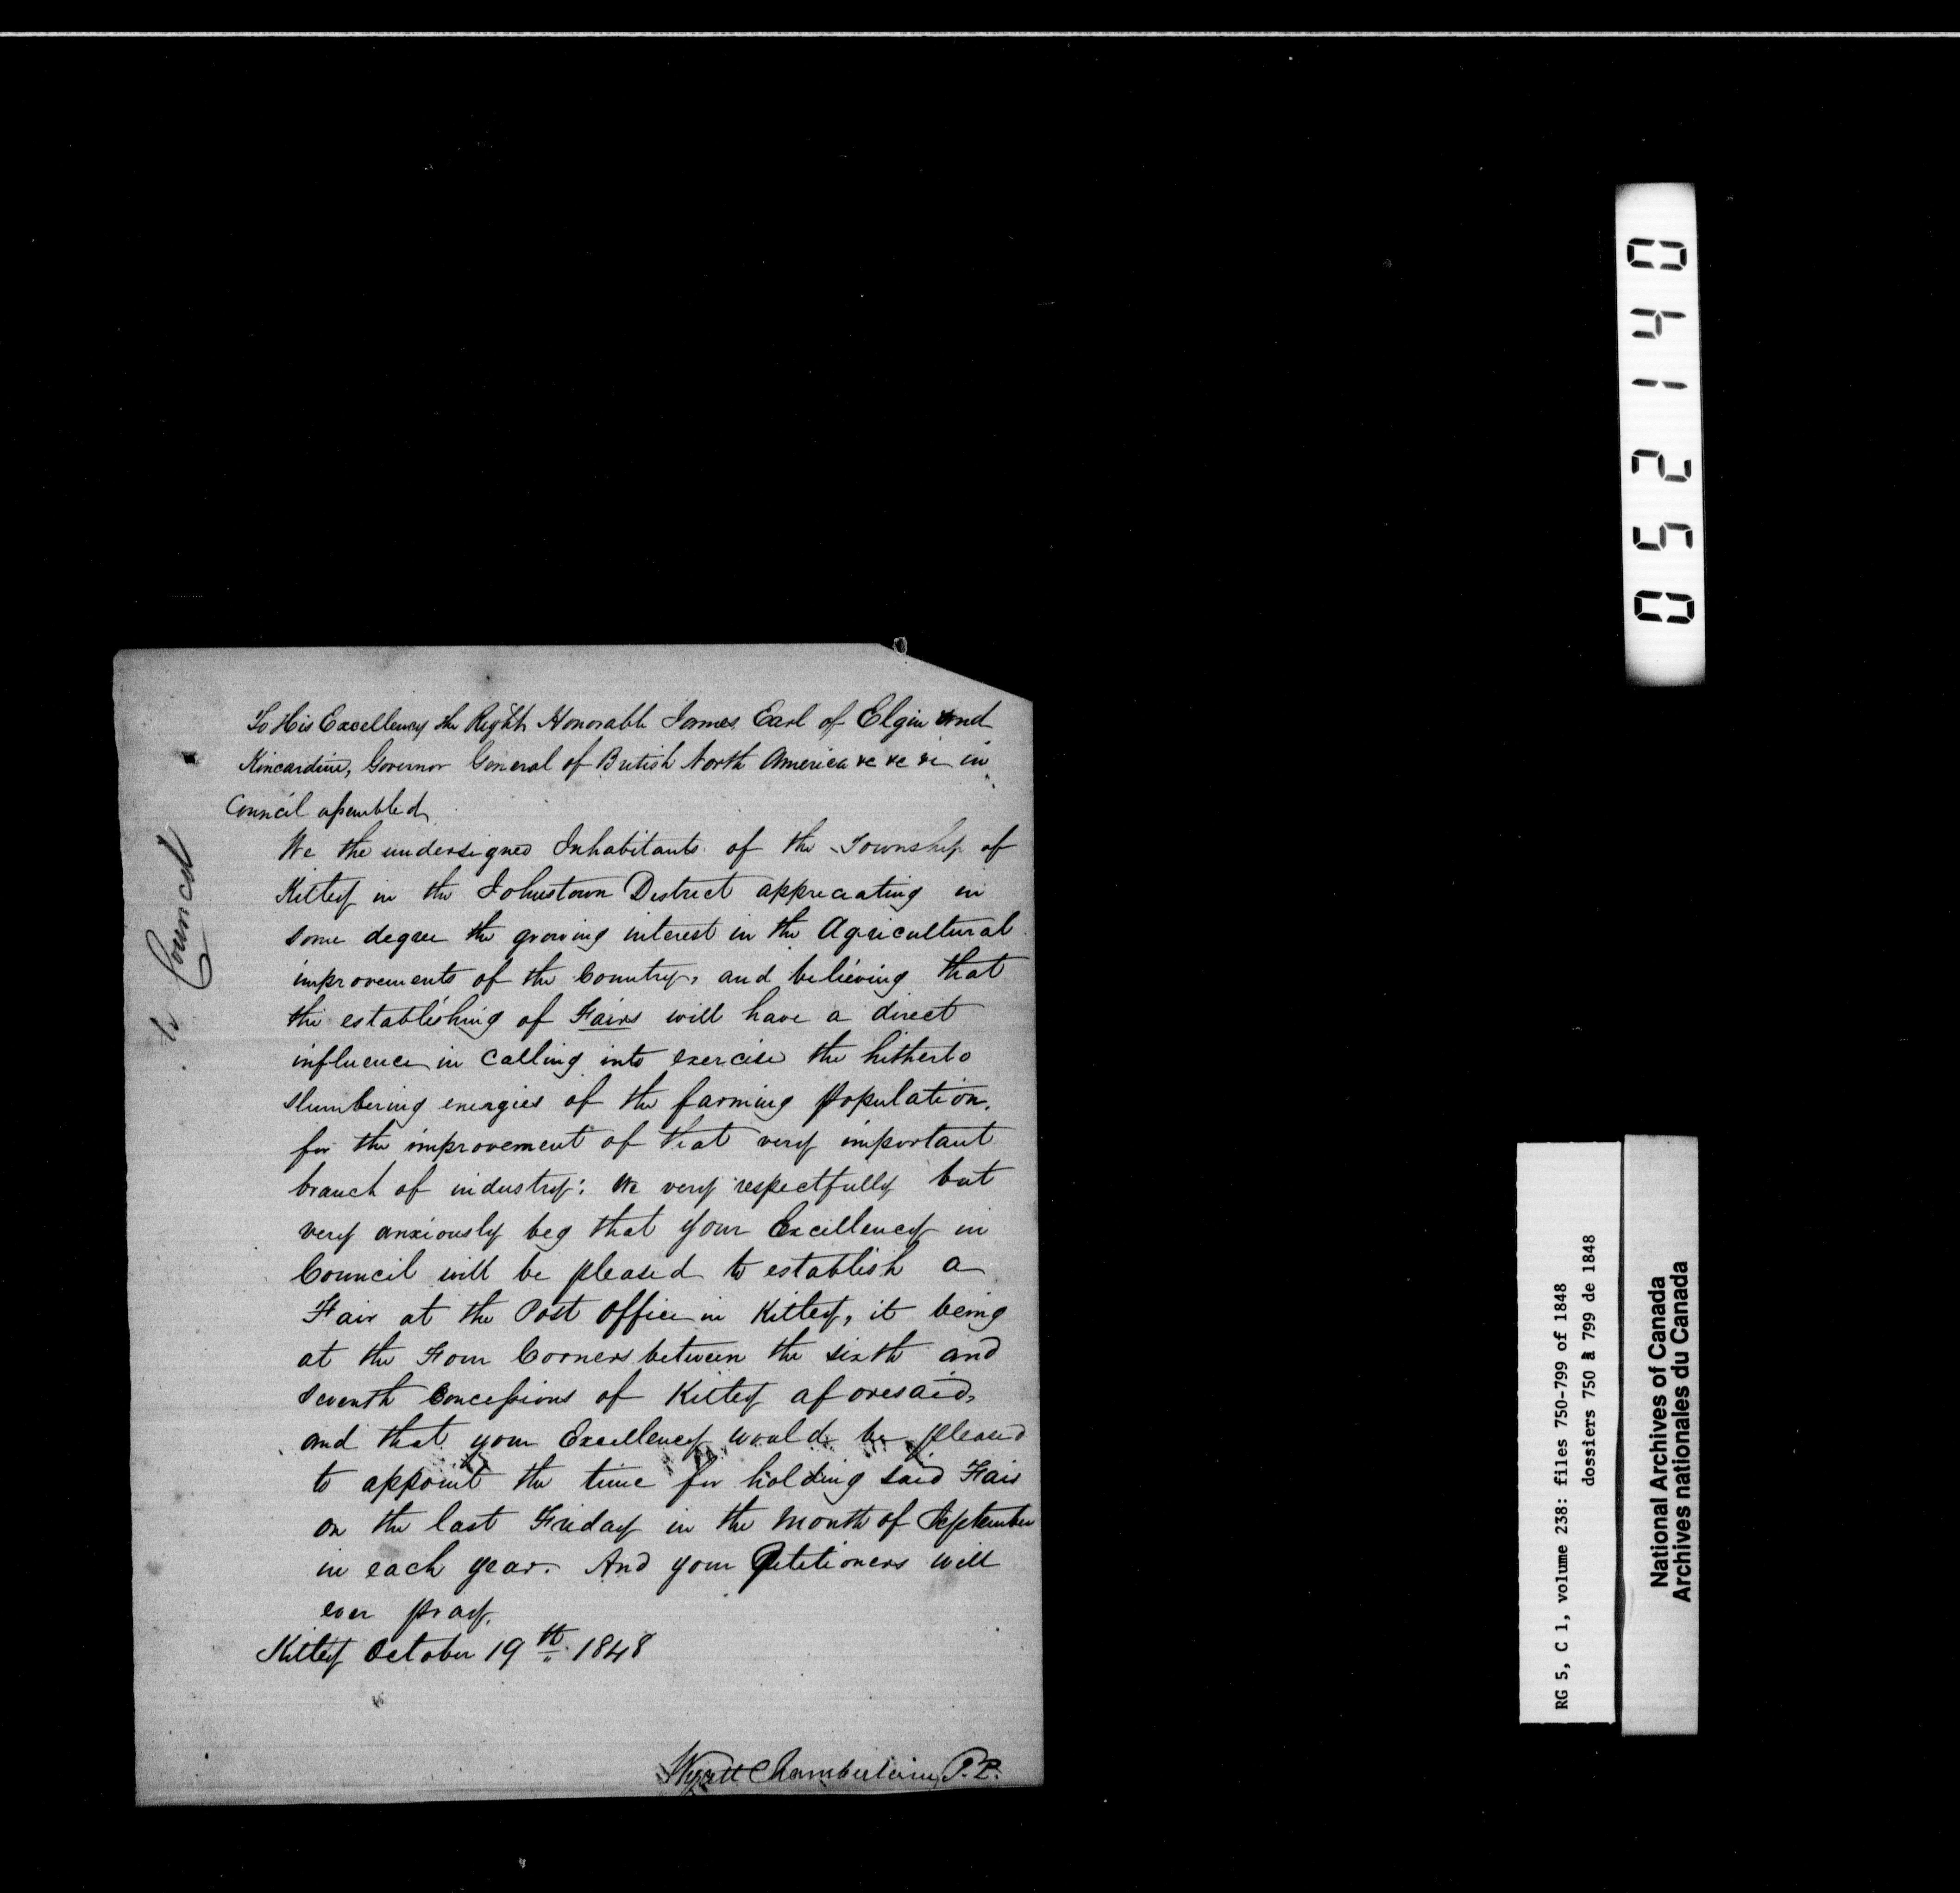 To His Excellency the Right Honorable James Earl of Elgin and
Kincardine, Governor General of British North America &c &c &c in
Council assembled
We the undersigned Inhabitants of the Township of
Kitley in the Johnstown District appreciating in
some degree the growing interest in the Agricultural
improvements of the Country, and believing that
the establishing of Fairs will have a direct
influence in calling into exercise the hitherto
slumbering energies of the farming population,
for the improvement of that very important
branch of industry: We very respectfully but
very anxiously beg that your Excellency in
Council will be pleased to establish a
Fair at the Post Office in Kitley, it being
at the Four Corners between the sixth and
seventh Concessions of Kitley aforesaid,
and that your Excellency would be pleased
to appoint the time for holding said Fair
on the last Friday in the Month of September
in each year. And your Petitioners will
ever pray.
Kitley October 19th 1848
Wyatt Chamberlain P.P.
Council
041250
RG 5, C 1, volume 238: files 750-799 of 1848
dossiers 750 à 799 de 1848
National Archives of Canada
Archives nationales du Canada